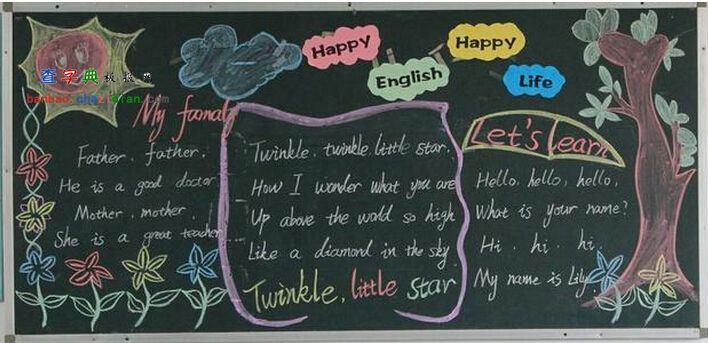 查字典板报网
banbao.chazidian.com
Happy
English
Happy
Life
My family
Father, father,
He is a good doctor
Mother, mother,
She is a great teacher
Twinkle, twinkle, little star,
How I wonder what you are
Up above the world so high
Like a diamond in the sky
Twinkle, little star
Let's learn
Hello, hello, hello,
What is your name?
Hi, hi, hi,
My name is Lily.